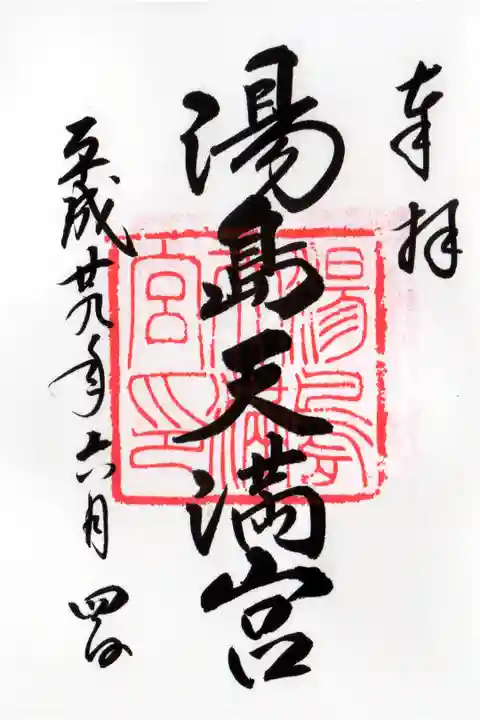 奉拝
湯島天満宮
湯島
天満
宮印
平成廿九年六月四日